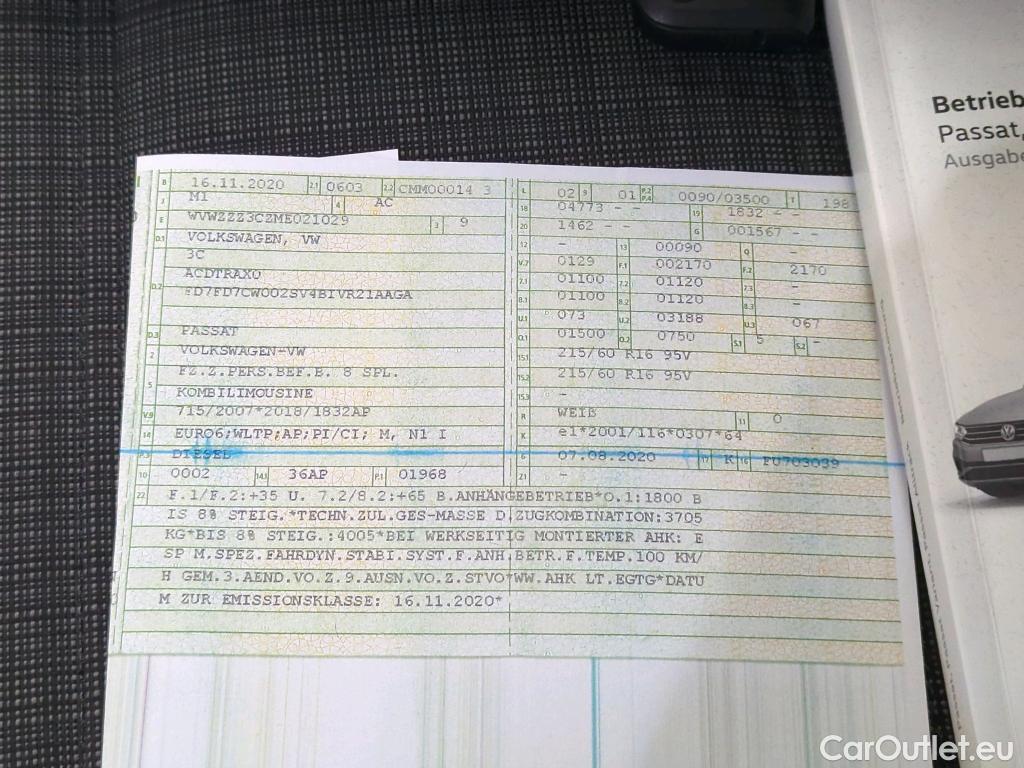 B 16.11.2020 2.1 0603 2.2 CMM00014 3
J M1 4 AC
E WVWZZZ3CZME021029 3 9
D.1 VOLKSWAGEN, VW
3C
D.2 ACDTRAX0
FD7FD7CW002SV4BIVR21AAGA
D.3 PASSAT
2 VOLKSWAGEN-VW
5 FZ.Z.PERS.BEF.B. 8 SPL.
KOMBILIMOUSINE
V.9 715/2007*2018/1832AP
14 EURO6;WLTP;AP;PI/CI; M, N1 I
P.3 DIESEL
10 0002 14.1 36AP P.1 01968
L 02 9 01 P.2 P.4 0090/03500 T 198
18 04773 - - 19 1832 - -
20 1462 - - G 001567 - -
12 - 13 00090 Q -
V.7 0129 F.1 002170 F.2 2170
7.1 01100 7.2 01120 7.3 -
8.1 01100 8.2 01120 8.3 -
U.1 073 U.2 03188 U.3 067
O.1 01500 O.2 0750 S.1 5 S.2 -
15.1 215/60 R16 95V
15.2 215/60 R16 95V
15.3 -
R WEIß 11 0
K e1*2001/116*0307*64
6 07.08.2020 17 K 16 FU703039
21 -
22 F.1/F.2:+35 U. 7.2/8.2:+65 B.ANHÄNGEBETRIEB*O.1:1800 B
IS 8% STEIG.*TECHN.ZUL.GES-MASSE D.ZUGKOMBINATION:3705
KG*BIS 8% STEIG.:4005*BEI WERKSEITIG MONTIERTER AHK: E
SP M.SPEZ.FAHRDYN.STABI.SYST.F.ANH.BETR.F.TEMP.100 KM/
H GEM.3.AEND.VO.Z.9.AUSN.VO.Z.STVO*WW.AHK LT.EGTG*DATU
M ZUR EMISSIONSKLASSE: 16.11.2020*
Betrieb
Passat,
Ausgabe
CarOutlet.eu